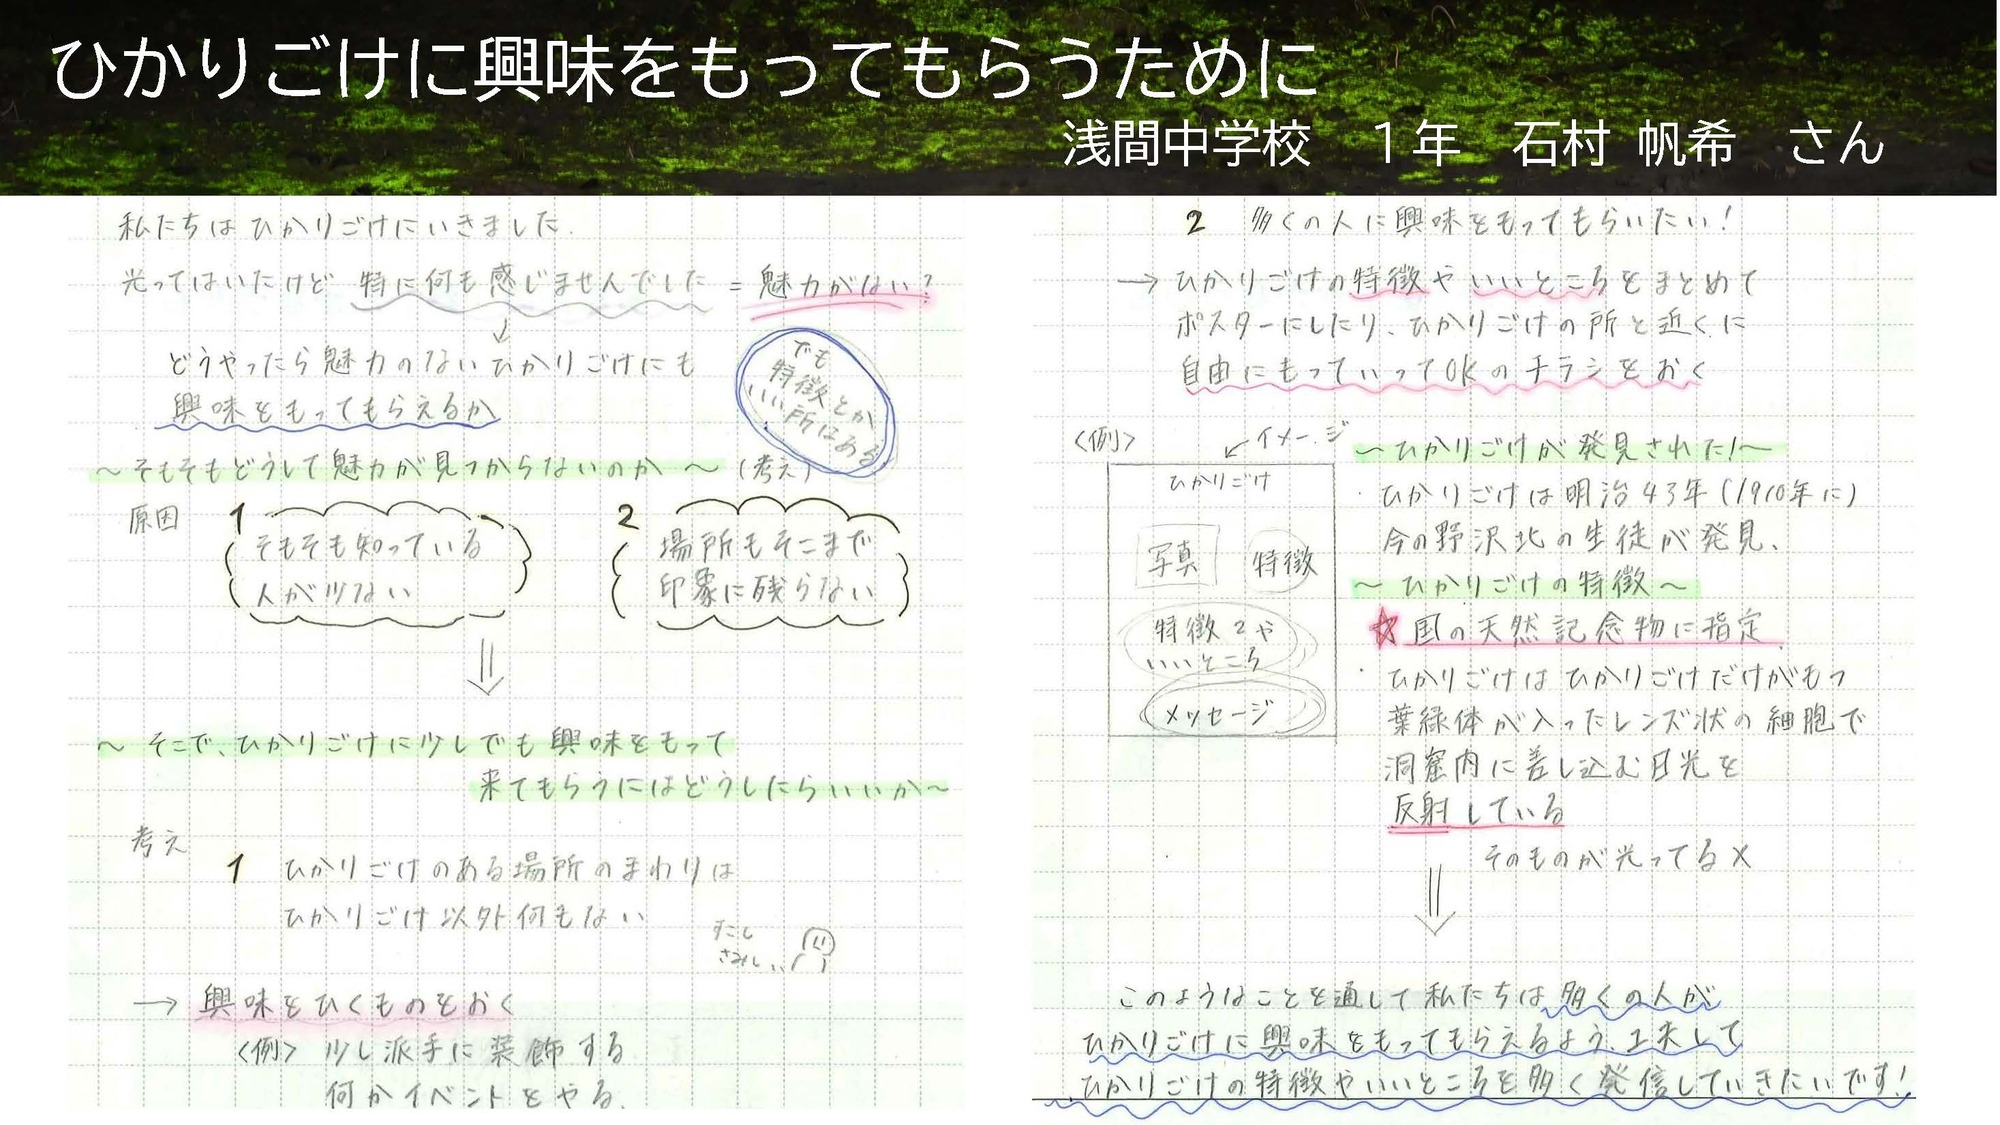 ひかりごけに興味をもってもらうために
浅間中学校　１年　石村 帆希　さん
私たちはひかりごけにいきました.
光ってはいたけど 特に何も感じませんでした = 魅力がない?
↓
どうやったら魅力のないひかりごけにも
興味をもってもらえるか
でも
特徴とか
いい所はある
～そもそもどうして魅力が見つからないのか～ (考え)
原因
1
そもそも知っている
人が少ない
2
場所もそこまで
印象に残らない
～ そこで、ひかりごけに少しでも興味をもって
来てもらうにはどうしたらいいか～
考え
1 ひかりごけのある場所のまわりは
ひかりごけ以外何もない
すこし
さみしい、
→ 興味をひくものをおく
〈例〉 少し派手に装飾する
何かイベントをやる.
2 多くの人に興味をもってもらいたい!
→ ひかりごけの特徴やいいところをまとめて
ポスターにしたり、ひかりごけの所と近くに
自由にもっていってOKのチラシをおく
〈例〉
イメージ
ひかりごけ
写真 特徴
特徴2や
いいところ
メッセージ
～ひかりごけが発見された!～
・ひかりごけは明治43年(1910年に)
今の野沢北の生徒が発見、
～ひかりごけの特徴～
☆国の天然記念物に指定
・ひかりごけはひかりごけだけがもつ
葉緑体が入ったレンズ状の細胞で
洞窟内に差し込む日光を
反射している
そのものが光ってる×
このようなことを通して私たちは多くの人が
ひかりごけに興味をもってもらえるよう、工夫して
ひかりごけの特徴やいいところを多く発信していきたいです!